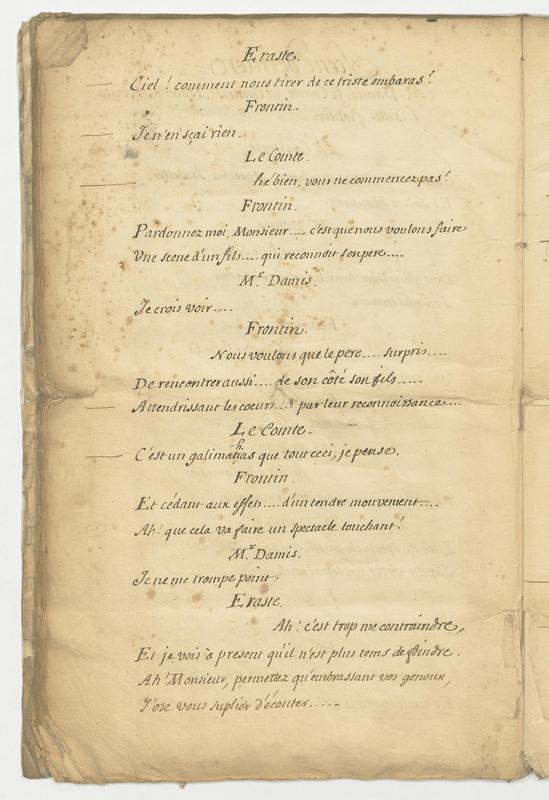 Eraste.
Ciel! comment nous tirer de ce triste ombaras!
Frontin.
Je n'en sçai rien.
Le Comte.
hé bien, vous ne commencez pas!
Frontin.
Pardonnez moi, Monsieur.... c'est que nous voulons faire
Une scene d'un fils.... qui reconnoit son pere....
Mr. Damis.
Je crois voir....
Frontin.
Nous voulons que le pere.... surpris....
De rencontrer aussi.... de son côté son fils.....
Attendrissant les coeurs.... par leur reconnoissance....
Le Comte.
C'est un galimathias que tout ceci, je pense.
Frontin.
Et cédant aux effets.... d'un tendre mouvement....
Ah! que cela va faire un spectacle touchant!
Mr. Damis.
Je ne me trompe point.
Eraste.
Ah! c'est trop me contraindre,
Et je vois à present qu'il n'est plus tems de feindre.
Ah! Monsieur, permettez qu'embrassant vos genoux,
J'ose vous suplier d'écouter.....